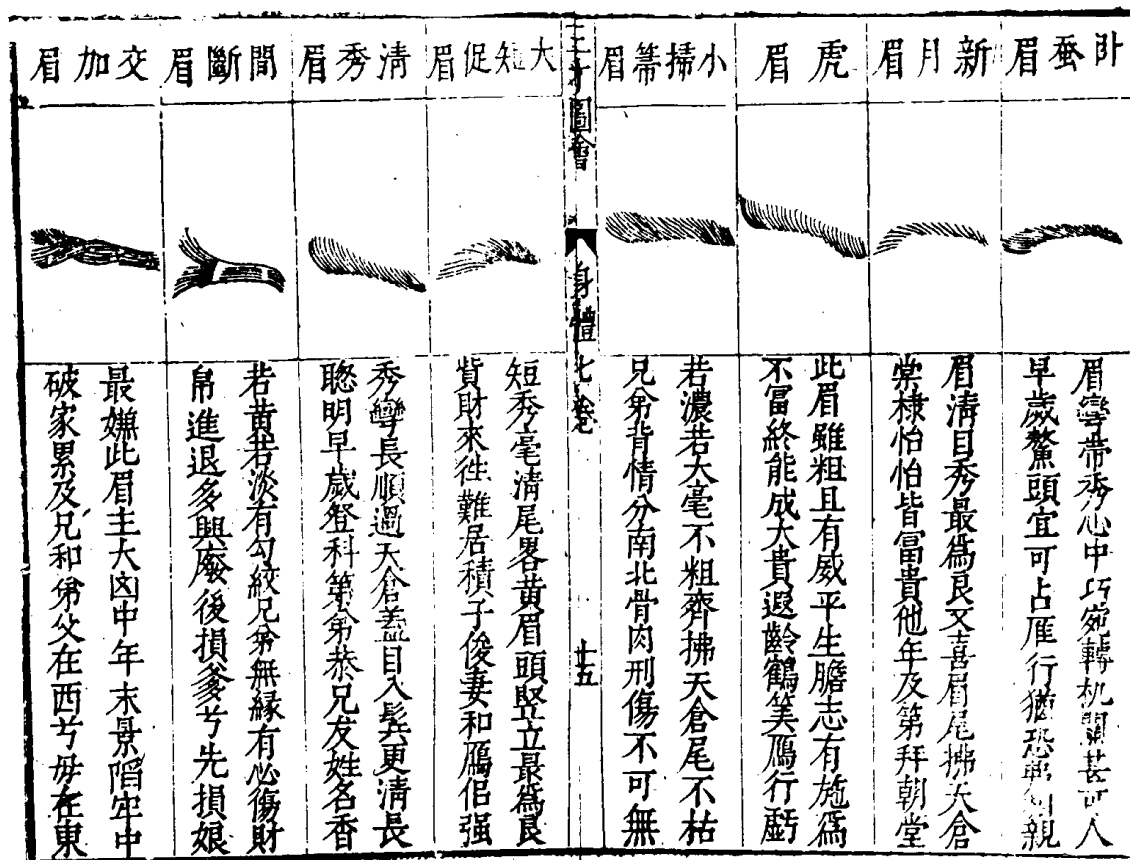 卧蚕眉
眉彎帶秀心中巧宛轉机關甚可人
早歲鰲頭宜可占雁行猶恐親
新月眉
眉清目秀最爲良又喜眉尾拂天倉
棠棣怡怡皆富貴他年及第拜朝堂
虎眉
此眉雖粗且有威平生膽志有施爲
不富終能成大貴遐齡鶴筭鴈行虧
小掃箒眉
若濃若大毫不粗齊拂天倉尾不枯
兄弟背情分南北骨肉刑傷不可無
三才圖會
身體七卷
廿五
大短促眉
短秀毫清尾畧黃眉頭竪立最爲良
貲財來徃難居積子俊妻和鴈侣强
清秀眉
秀彎長順過天倉蓋目入鬂更清長
聰明早歲登科第弟恭兄友姓名香
間斷眉
若黃若淡有勾絞兄弟無緣有必傷財
帛進退多興廢後損爹兮先損娘
交加眉
最嫌此眉主大凶中年末景陷牢中
破家累及兄和弟父在西兮母在東